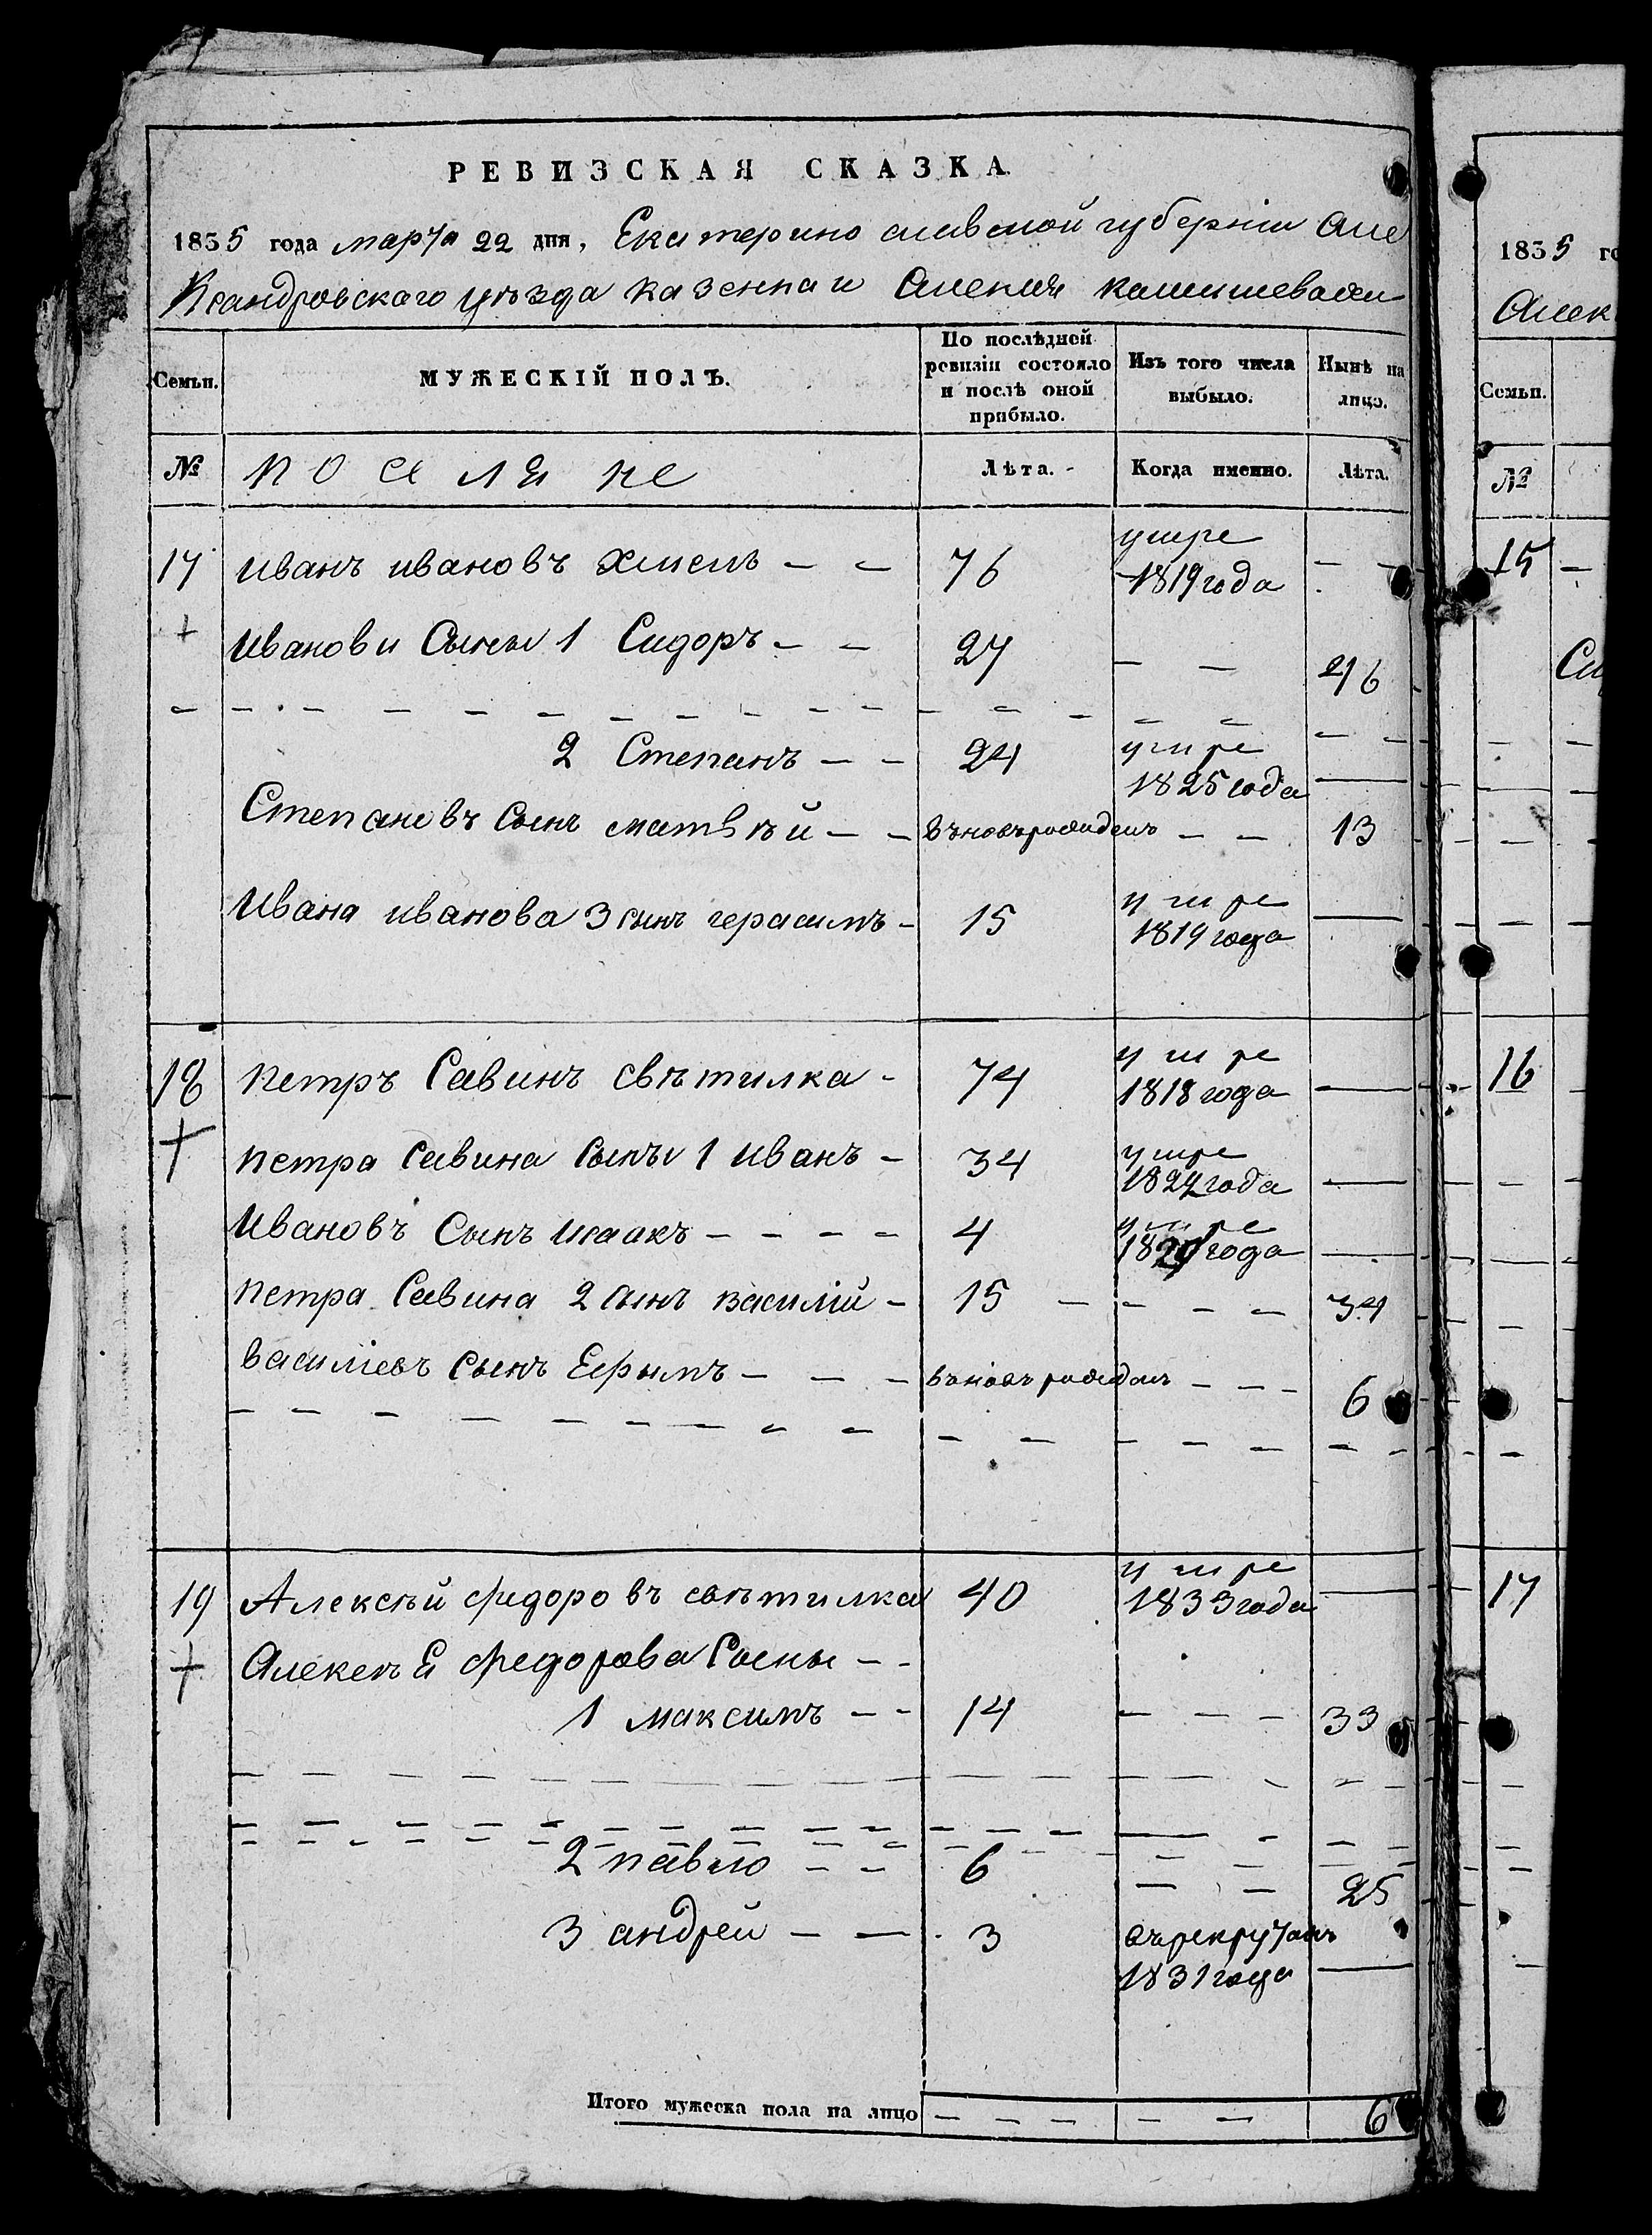 РЕВИЗСКАЯ СКАЗКА
1835 года марта 22 дня, Екатерино славской губерніи Але
Ксандровскаго уѣзда казенная
Семьи.
МУЖЕСКІЙ ПОЛЪ.
По послѣдней ревизіи состояло и послѣ оной прибыло.
Изъ того числа выбыло.
Нынѣ на лицо.
№
поселяне
Лѣта.
Когда именно.
Лѣта.
17 иванъ ивановъ хмель - - 76 умре 1819 года - -
Иванови Сыны 1 Сидоръ - - 27 - - 46
2 Степанъ - - 24 умре 1825 года
Степановъ Сынъ матвѣй - - вновърожденъ - - 13
Ивана иванова 3 сынъ герасимъ - 15 умре 1819 года
18 петръ Савинъ свѣтилка - 74 умре 1818 года
петра Савина Сыны 1 иванъ - 34 умре 1824 года
Ивановъ Сынъ исаакъ - - - - 4 умре года
петра Савина 2 сынъ василій - 15 - - - - 34
василіевъ Сынъ Ефымъ - - - вновъ рожденъ - - - 6
19 Алексѣй федоровъ свѣтилка 40 умре 1833 года
Алексѣя федорова Сыны - -
1 максимъ - - 14 - - - 33
2 павло - - 6 - - 25
3 андрей - - 3 въ рекрутахъ 1831 года
Итого мужеска пола на лицо - - - - - 6
1835 го
Алек
Семьи.
№
15
16
17